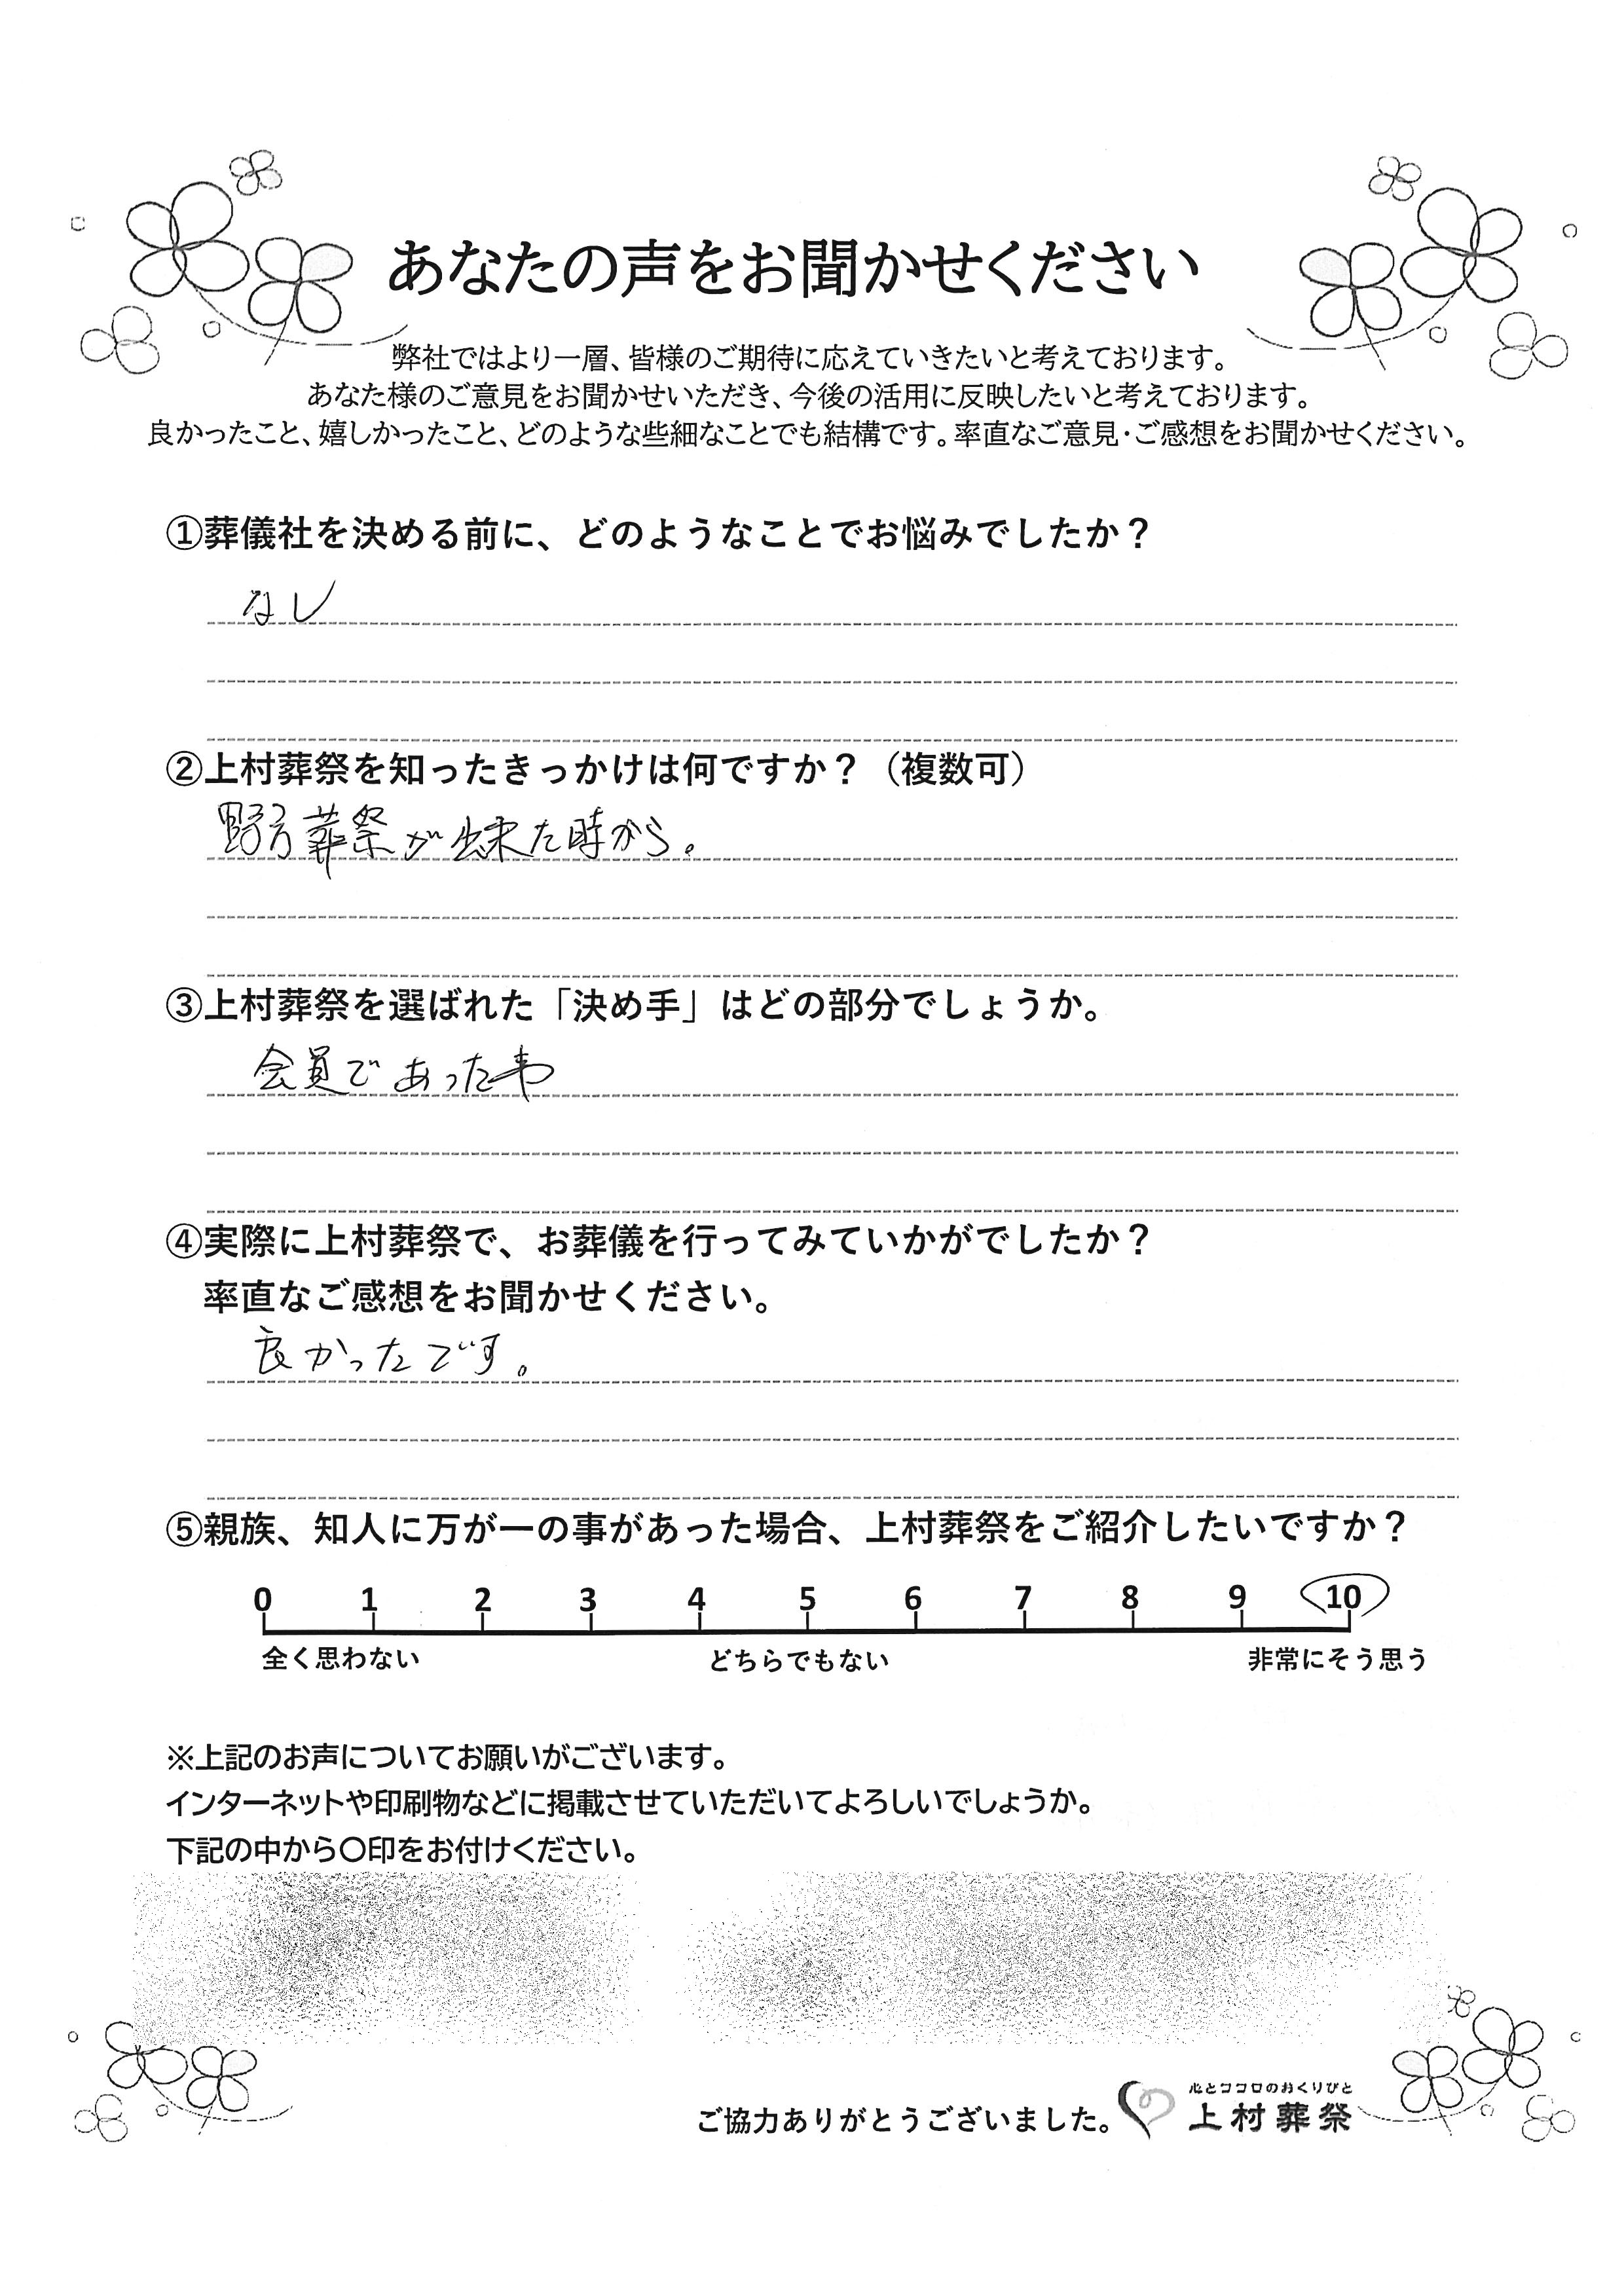 あなたの声をお聞かせください
弊社ではより一層、皆様のご期待に応えていきたいと考えております。
あなた様のご意見をお聞かせいただき、今後の活用に反映したいと考えております。
良かったこと、嬉しかったこと、どのような些細なことでも結構です。率直なご意見・ご感想をお聞かせください。
①葬儀社を決める前に、どのようなことでお悩みでしたか？
なし
②上村葬祭を知ったきっかけは何ですか？（複数可）
野方葬祭が出来た時から。
③上村葬祭を選ばれた「決め手」はどの部分でしょうか。
会員であった事
④実際に上村葬祭で、お葬儀を行ってみていかがでしたか？
率直なご感想をお聞かせください。
良かったです。
⑤親族、知人に万が一の事があった場合、上村葬祭をご紹介したいですか？
0 1 2 3 4 5 6 7 8 9 10
全く思わない どちらでもない 非常にそう思う
※上記のお声についてお願いがございます。
インターネットや印刷物などに掲載させていただいてよろしいでしょうか。
下記の中から〇印をお付けください。
心とココロのおくりびと
ご協力ありがとうございました。 上村葬祭